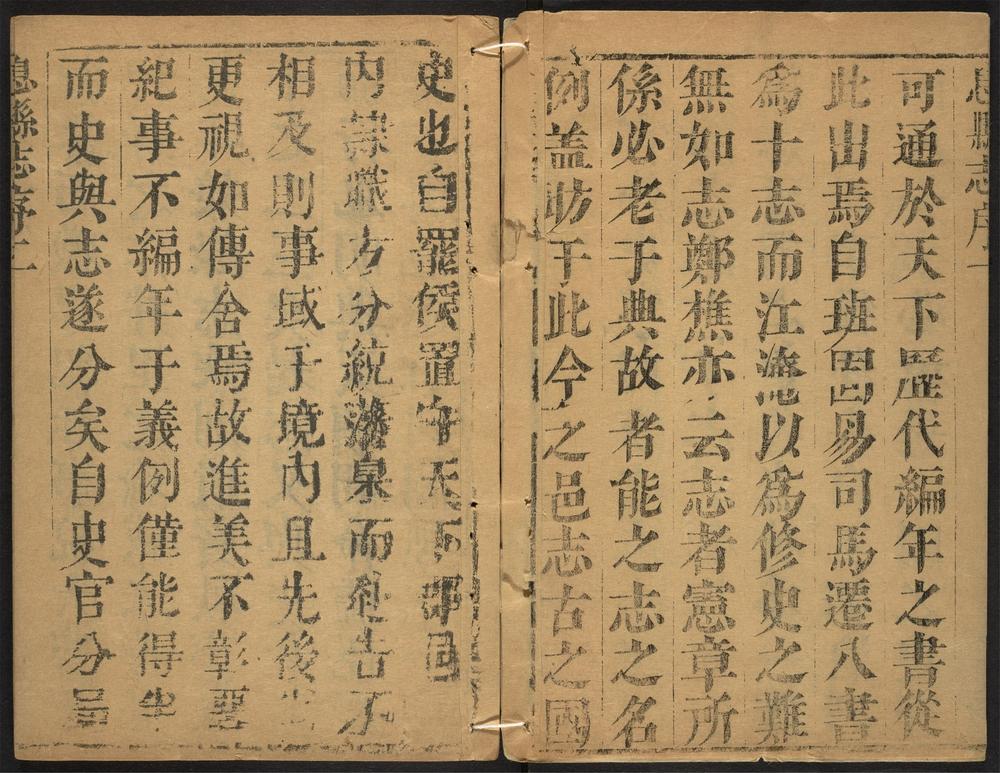 息縣志序一
可通於天下歷代編年之書從
此出焉自班固易司馬遷八書
為十志而江淹以為修史之難
無如志鄭樵亦云志者憲章所
係必老于典故者能之志之名
例盖昉于此今之邑志古之國
史也自罷侯置守天下郡国
内隸職方分統藩臬而赴告不
相及則事域于境内且先後
更視如傳舍焉故進美不彰
紀事不編年于義例僅能得半
而史與志遂分矣自史官分
息縣志序二